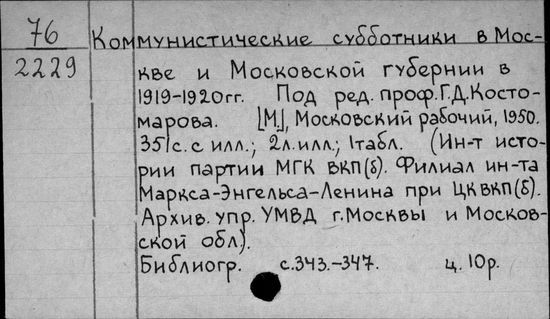 76
2229
Коммунистические субботники в Мос-
кве и Московской губернии в
1919-1920гг. Под ред. проф. Г.Д. Косто-
марова. [М.], Московский рабочий, 1950.
351с. с илл.; 2л. илл.; 1 табл. (Ин-т исто-
рии партии МГК ВКП(б). Филиал ин-та
Маркса-Энгельса-Ленина при ЦК ВКП(б).
Архив. упр. УМВД г. Москвы и Москов-
ской обл).
Библиогр. с.343.-347. ц. 10р.